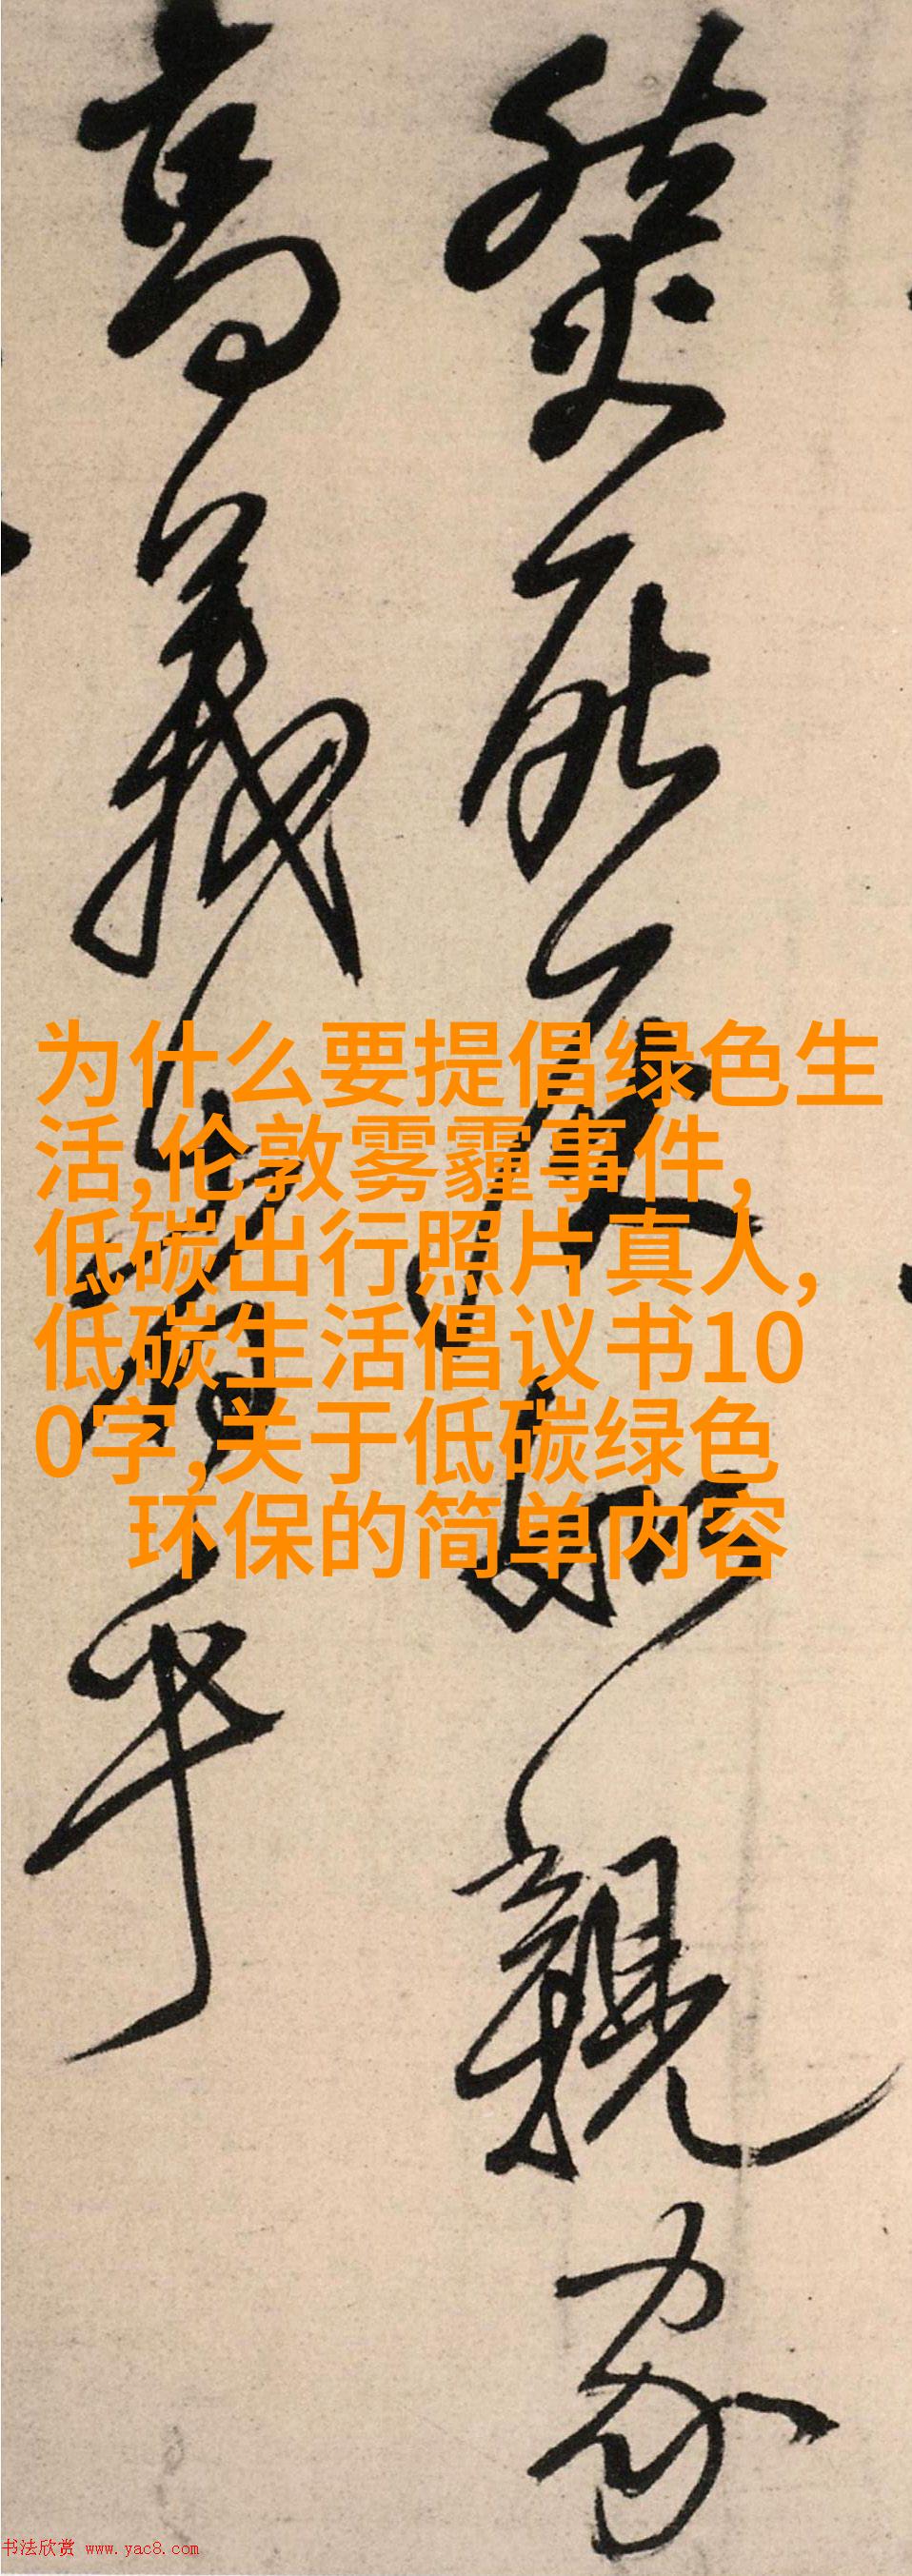 如親家
高義者乎
为什么要提倡绿色生
活,伦敦雾霾事件,
低碳出行照片真人,
低碳生活倡议书10
0字,关于低碳绿色
环保的简单内容
书法欣赏 www.yac8.com